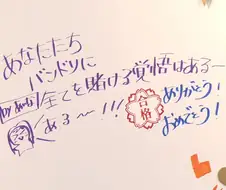 あなたたち
バンドリに
全てを賭ける覚悟はあるー
ある〜〜!!!
合格
ありがとう!
おめでとう!